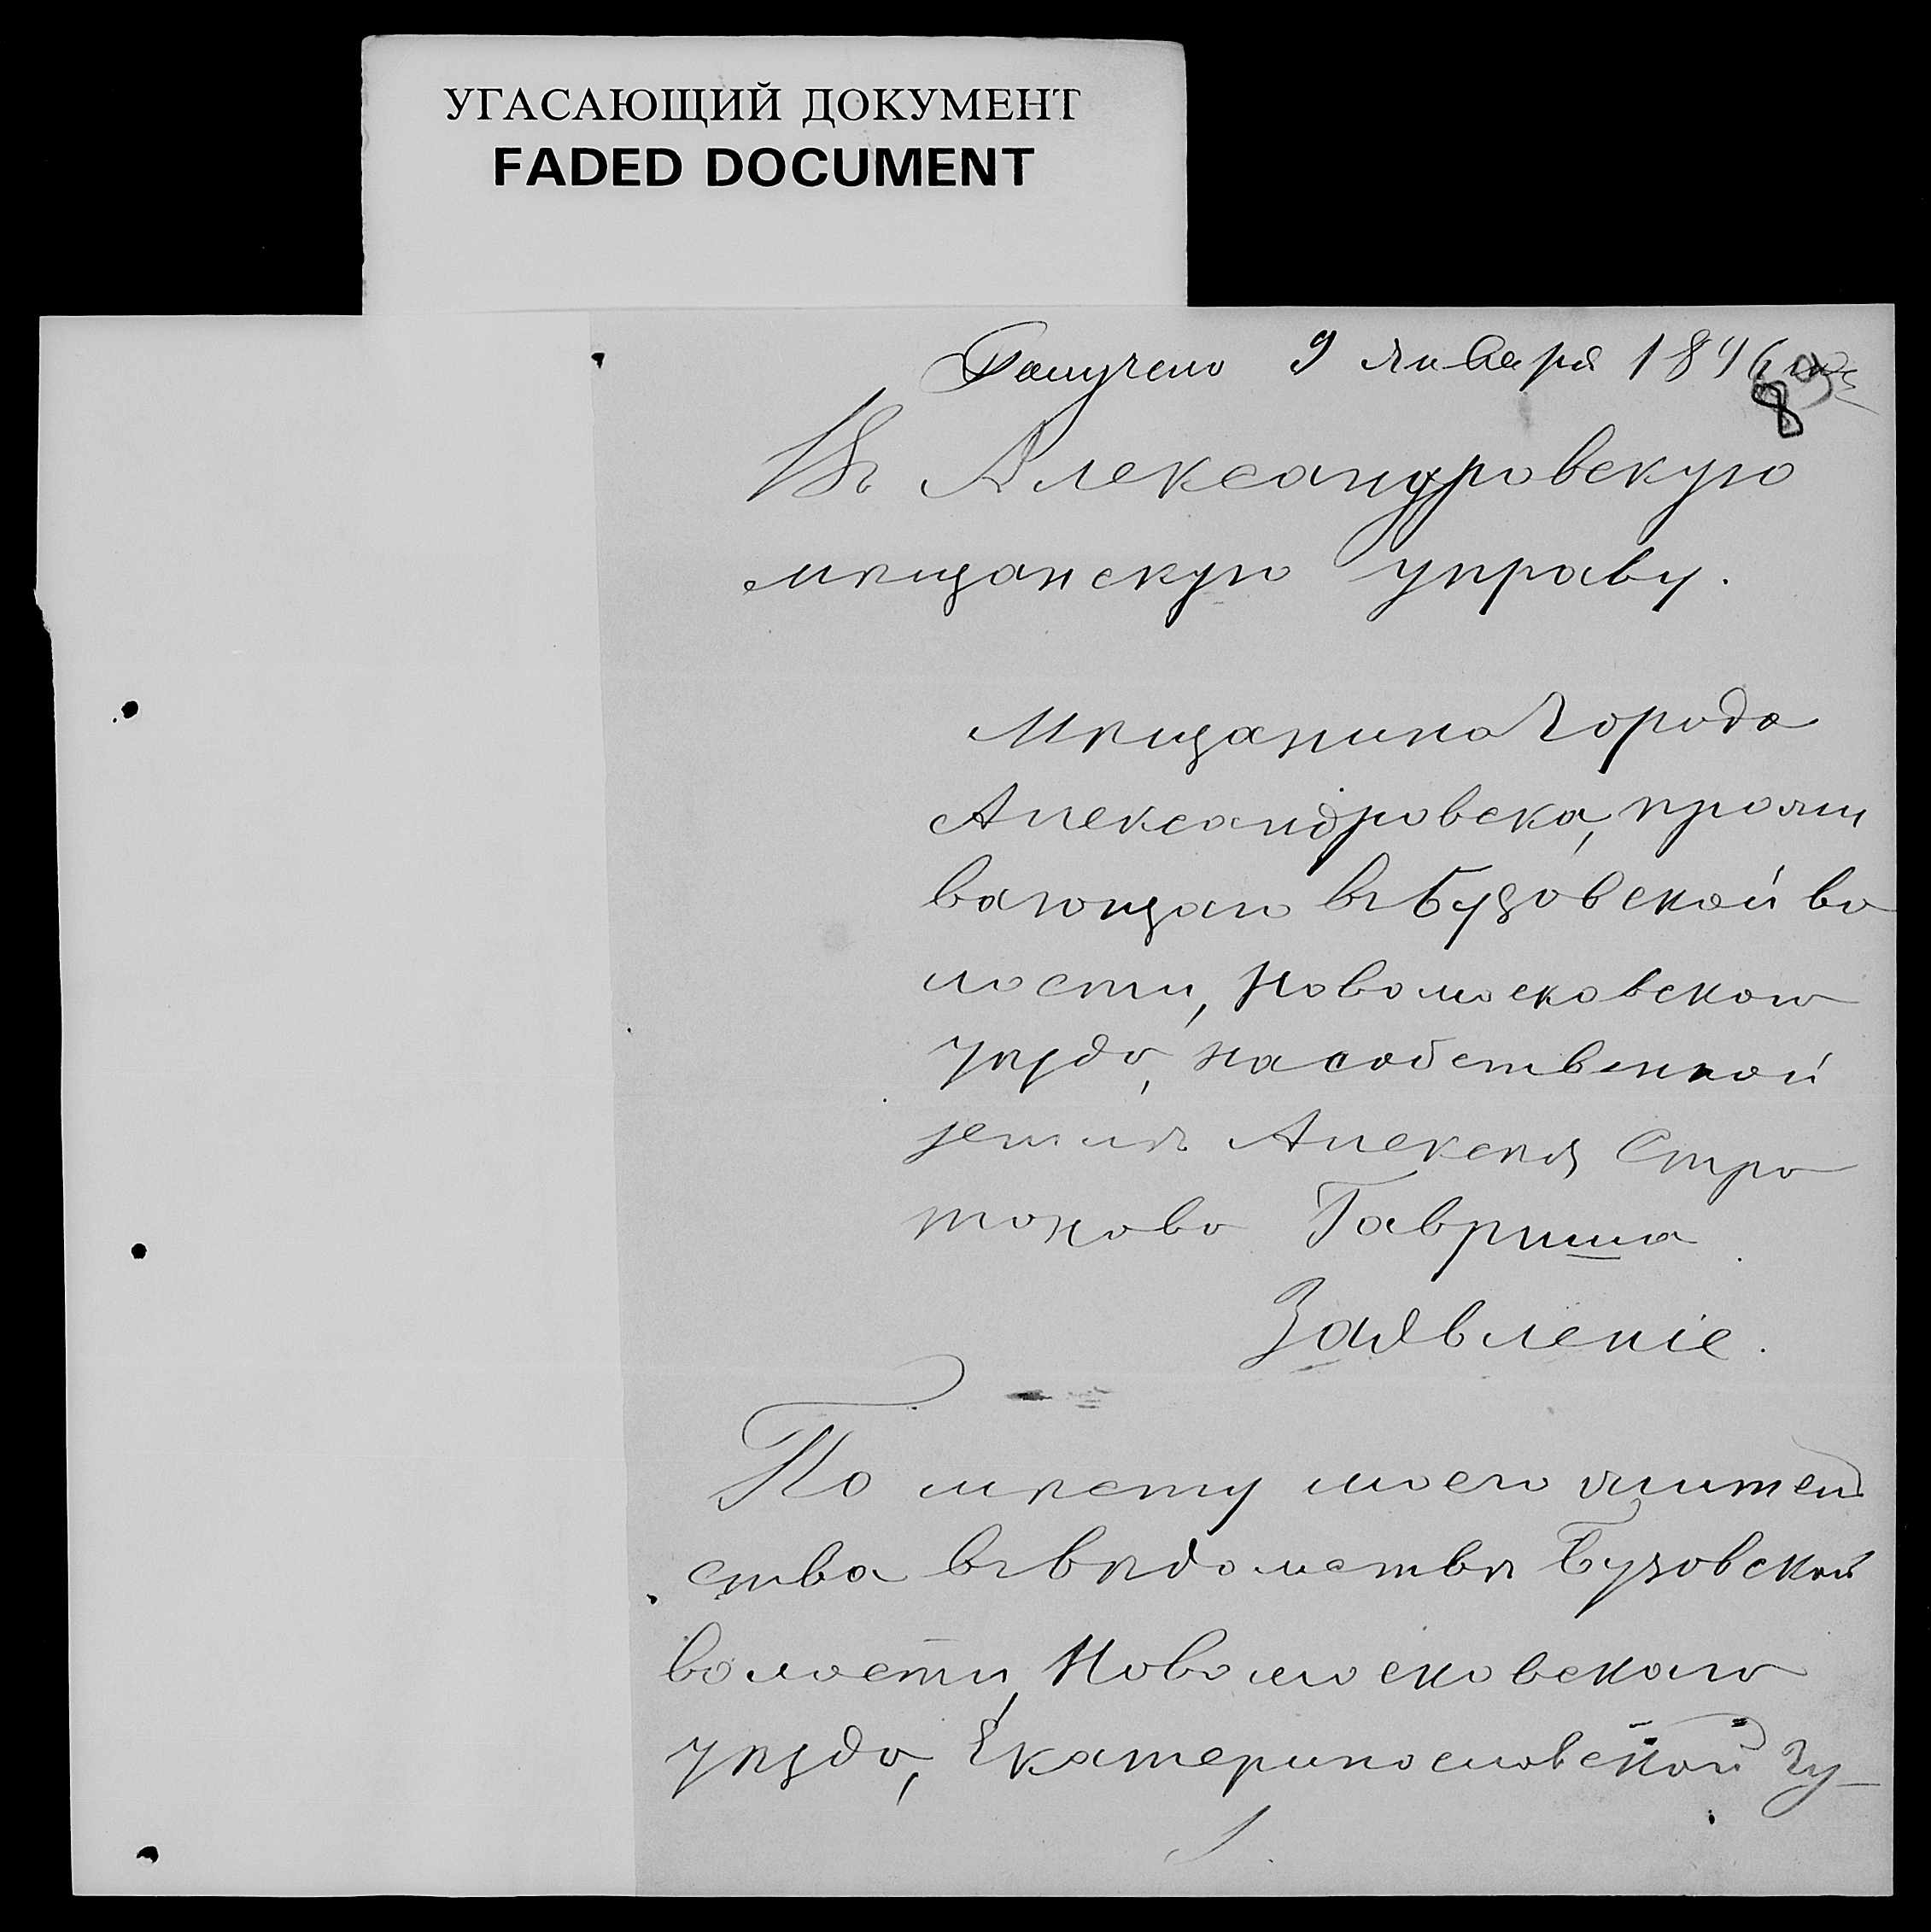 УГАСАЮЩИЙ ДОКУМЕНТ
FADED DOCUMENT
Получено 9 января 1896
89
Въ Александровскую
мѣщанскую управу.
Мѣщанина города
Александровска, прожи
вающаго въ Бузовской во
лости, Новомосковского
уѣзда, на собственной
землѣ Алексѣя Стра
тонова Гавриша
Заявленіе.
По мѣсту моего жительс
ства въ вѣдомствѣ Бузовской
волости, Новомосковскаго
уѣзда, Екатеринославской гу-